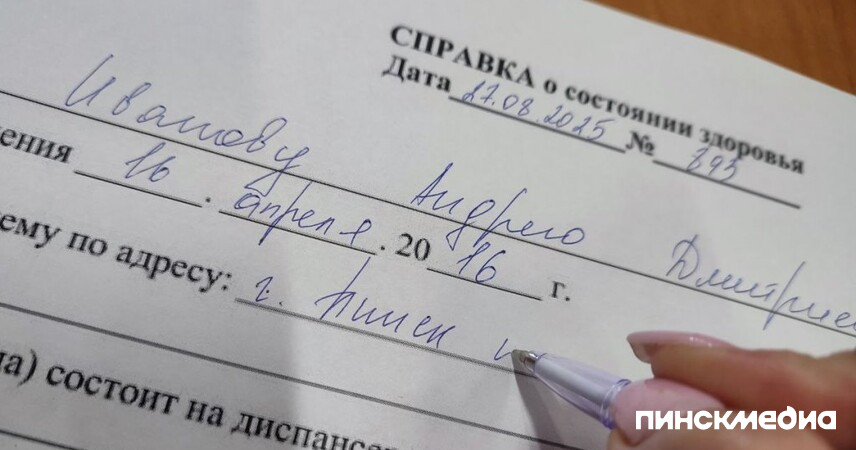 СПРАВКА о состоянии здоровья
Дата 27.08.2025 № 893
Иванову Андрею Дмитрие
ения 16 . апреля . 20 16 г.
ему по адресу: г. Пинск
а) состоит на диспансе
ПИНСКМЕДИА